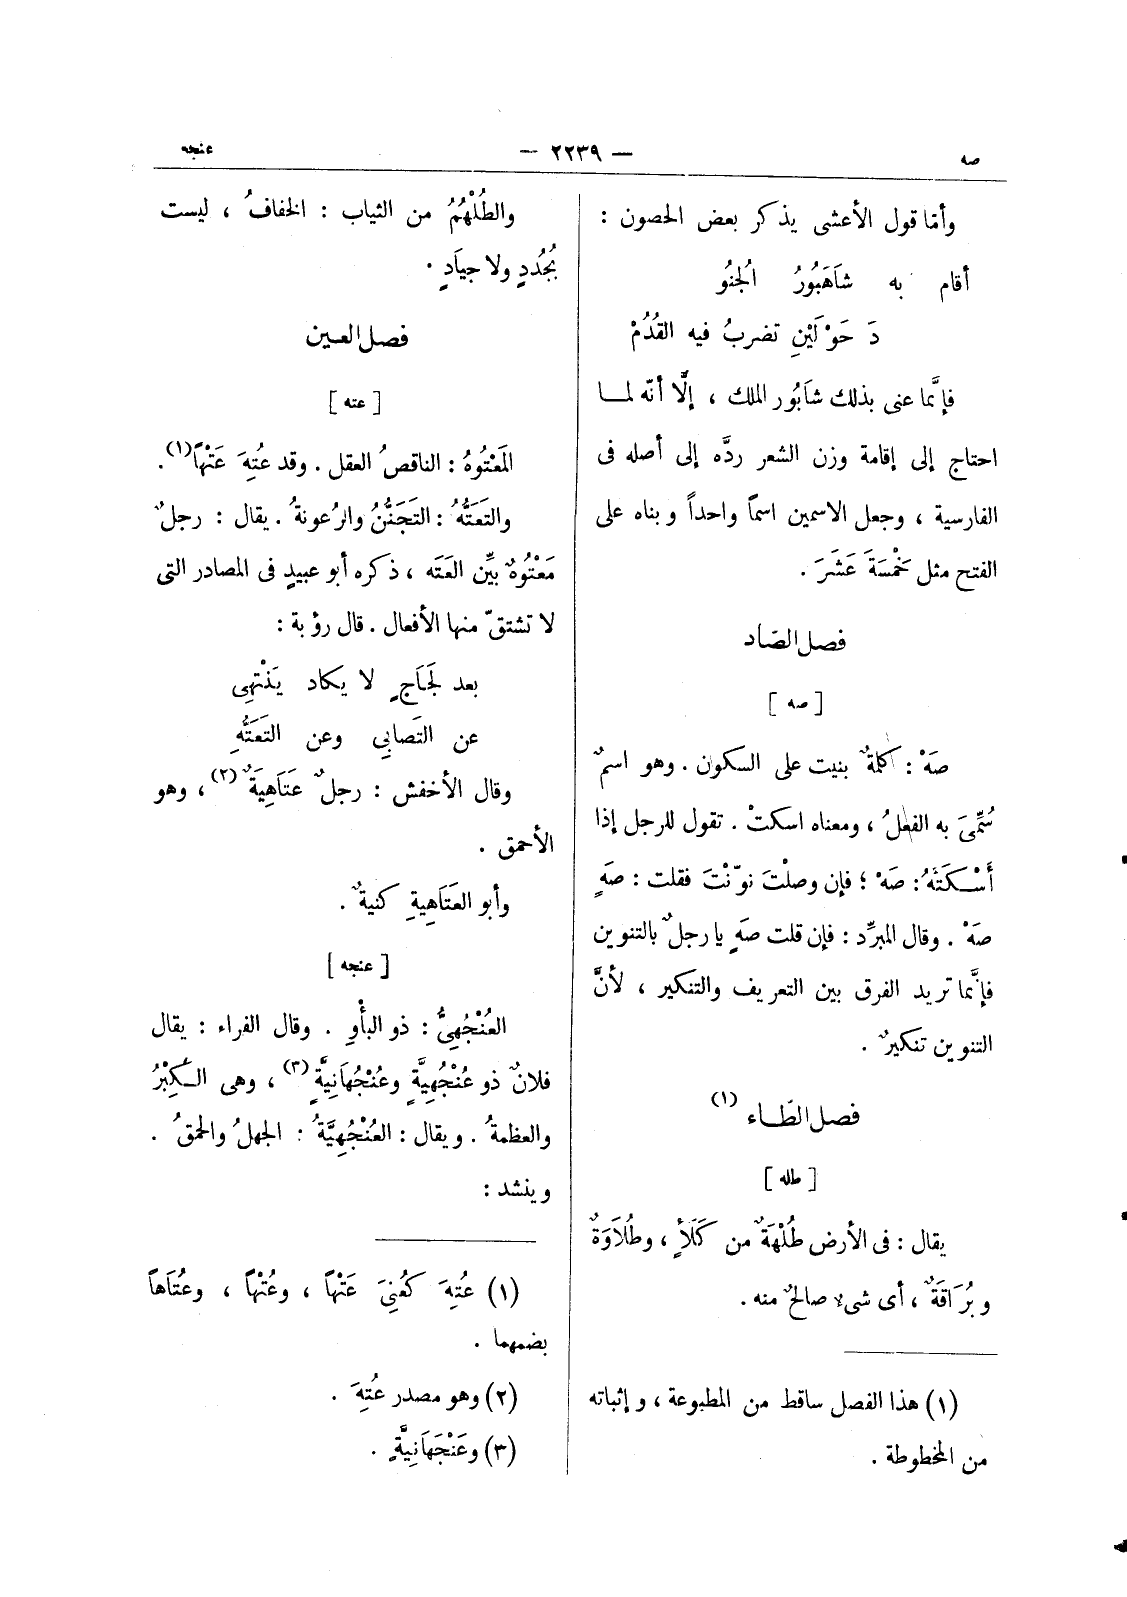 صه
— ٢٢٣٩ —
عنجه
وأما قول الأعشى يذكر بعض الحصون :
أقام به شَاهَبُورُ الجُنُو
دَ حَوْلَيْنِ تضربُ فيه القُدُمْ
فإنَّما عنى بذلك شابُور الملك ، إلَّا أنّه لمـا
احتاج إلى إقامة وزن الشعر ردَّه إلى أصله فى
الفارسية ، وجعل الاسمين اسماً واحداً وبناه على
الفتح مثل خَمْسَةَ عَشَرَ .
فصل الصّاد
[ صه ]
صَهْ : كلمةٌ بنيت على السكون . وهو اسمٌ
سُمِّىَ به الفعلُ ، ومعناه اسكتْ . تقول للرجل إذا
أَسْكَتَهُ : صَهْ ؛ فإن وصلْتَ نوّنْتَ فقلت : صَهٍ
صَهْ . وقال المبرِّد : فإن قلت صَهٍ يا رجلٌ بالتنوين
فإنَّما تريد الفرق بين التعريف والتنكير ، لأنَّ
التنوين تنكيرٌ .
فصل الطّـاء (١)
[ طله ]
يقال : فى الأرض طُلْهَةٌ من كَلَأٍ ، وطُلَاوَةٌ
وبُرَاقَةٌ ، أى شىءٌ صالحٌ منه .
(١) هذا الفصل ساقط من المطبوعة ، وإثباته
من المخطوطة .
والطُلْهُمُ من الثياب : الخفافُ ، ليست
بجُدُدٍ ولا جيادٍ .
فصل العـين
[ عته ]
المَعْتُوهُ : الناقصُ العقل . وقد عُتِهَ عَتْهًا (١) .
والتَعَتُّهُ : التَجَنُّنُ والرُعونةُ . يقال : رجلٌ
مَعْتُوهٌ بيِّن العَتَه ، ذكره أبو عبيدٍ فى المصادر التى
لا تشتقّ منها الأفعال . قال رؤبة :
بعد لَجَاجٍ لا يكاد يَنْتهِى
عن التَصابِى وعن التَعَتُّهِ
وقال الأخفش : رجلٌ عَتَاهِيَةٌ (٢) ، وهو
الأحمق .
وأبو العَتَاهِيةِ كنيةٌ .
[ عنجه ]
العُنْجُهِىُّ : ذو البأْوِ . وقال الفراء : يقال
فلانٌ ذو عُنْجُهِيَّةٍ وعُنْجُهَانِيَّةٍ (٣) ، وهى الـكِبْرُ
والعظمةُ . ويقال : العُنْجُهِيَّةُ : الجهلُ والحمقُ .
وينشد :
(١) عُتِهَ كعُنِىَ عَتْهًا ، وعُتْهًا ، وعُتَاهاً
بضمهما .
(٢) وهو مصدر عُتِهَ .
(٣) وعَنْجَهَانِيَّةٍ .